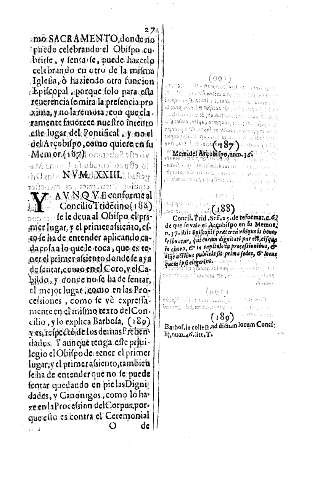 27
mo SACRAMENTO, donde no
puede celebrando el Obispo cu-
brirse, y sentarse, puede hazerlo
celebrando en otro de la misma
Iglesia, ò haziendo otra funcion
Episcopal, porque solo para esta
reuerencia se mira la presencia pro
xima, y no la remota, con que cla-
ramente fauorece nuestro intento
este lugar del Pontifical, y no el
del Arçobispo, como quiere en su
Memor. (187)
NVM. XXIII.
Y AVNQVE conforme al
Concilio Tridentino (188)
se le deua al Obispo el pri-
mer lugar, y el primer asiento, es-
to se ha de entender aplicando ca-
da cosa a lo que le toca, que es te-
ner el primer asiento donde se aya
de sentar, como en el Coro, y el Ca-
bildo, y donde no se ha de sentar,
el mejor lugar, como en las Pro-
cessiones, como se vè expressa-
mente en el mismo texto del Con-
cilio, y lo explica Barbosa, (189)
y es, respecto de los demas Preben-
dados. Y aunque tenga este priui-
legio el Obispo de tener el primer
lugar, y el primer asiento, tambien
se ha de entender que no se puede
sentar quedando en pie las Digni-
dades, y Canonigos, como lo ha-
ze en la Procession del Corpus, por-
que esso es contra el Ceremonial
O de
(187)
Mem. del Arçobispo, num. 16.
(188)
Concil. Trid. Sess. 25. de reformat. c. 6.
de que se vale el Arçobispo en su Memor.
n. 17.
(189)
Barbos. in collect. ad dictum locum Concil.
num. 46. litt. T.